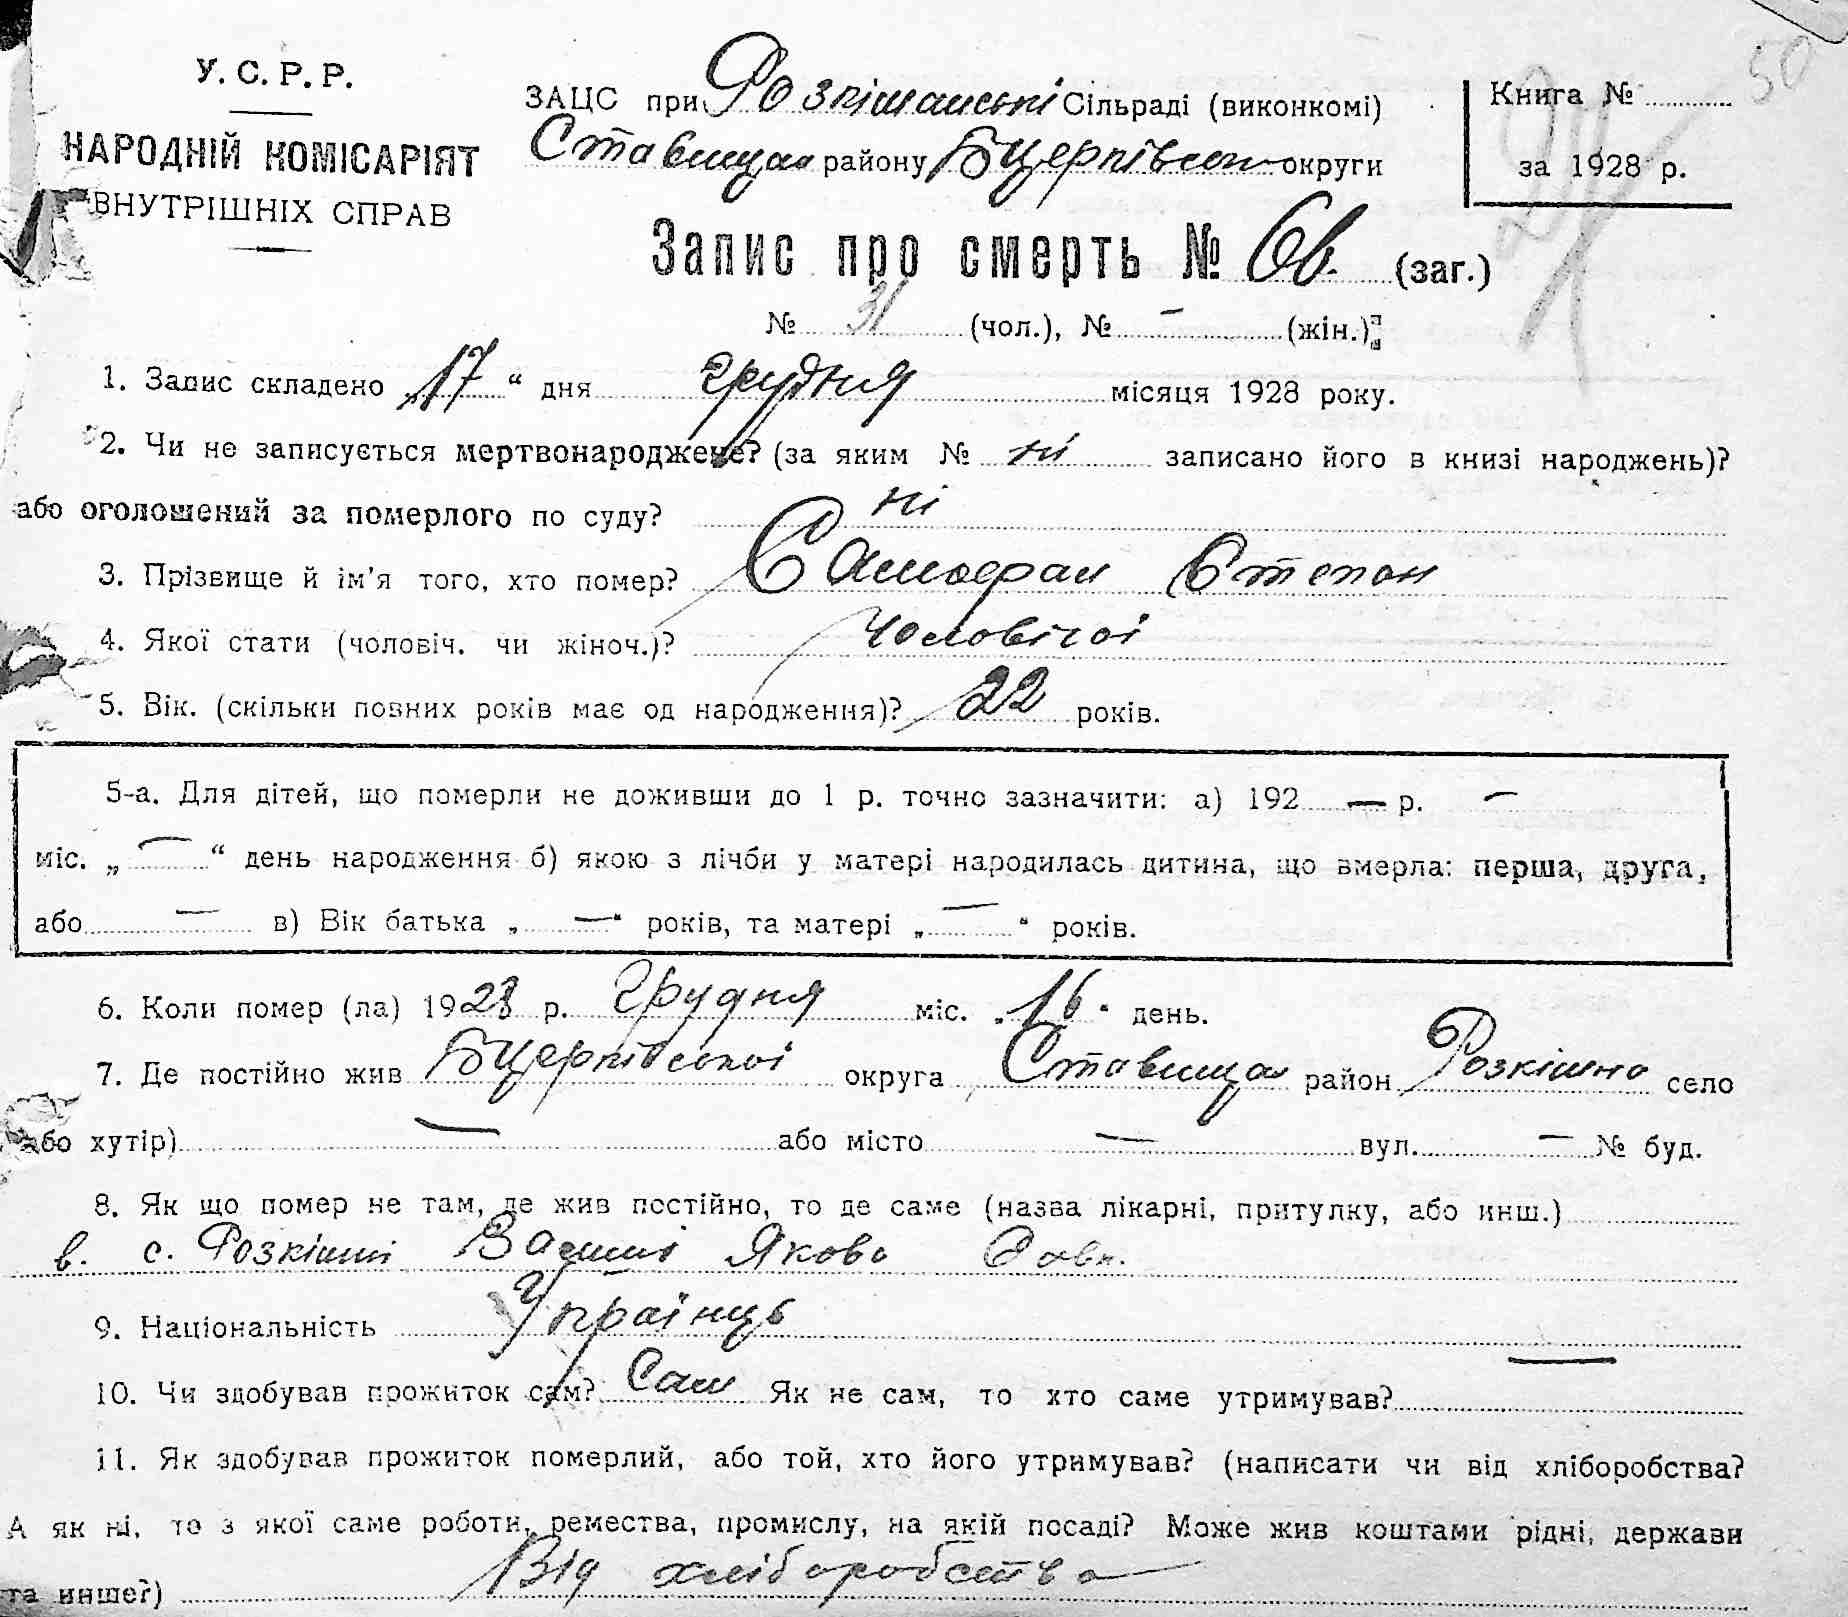 50
У. С. Р. Р.
НАРОДНІЙ КОМІСАРІЯТ
ВНУТРІШНІХ СПРАВ
ЗАЦС при Розкішанські Сільраді (виконкомі)
району округи
Книга №
за 1928 р.
Запис про смерть № (заг.)
№ 31 (чол.), № – (жін.)
1. Запис складено „17“ дня грудня місяця 1928 року.
2. Чи не записується мертвонароджене? (за яким № ні записано його в книзі народжень)?
або оголошений за померлого по суду? ні
3. Прізвище й ім'я того, хто помер? Степан
4. Якої стати (чоловіч. чи жіноч.)? чоловічої
5. Вік. (скільки повних років має од народження)? 22 років.
5-а. Для дітей, що померли не доживши до 1 р. точно зазначити: а) 192 — р. —
міс. „ — “ день народження б) якою з лічби у матері народилась дитина, що вмерла: перша, друга,
або — в) Вік батька „ — “ років, та матері „ — “ років.
6. Коли помер (ла) 1928 р. грудня міс. „16“ день.
7. Де постійно жив Бцерківської округа район Розкішна село
або хутір) — або місто — вул. — № буд.
8. Як що помер не там, де жив постійно, то де саме (назва лікарні, притулку, або инш.)
в. с. Розкішні Якова
9. Національність Українць
10. Чи здобував прожиток сам? Сам Як не сам, то хто саме утримував? —
11. Як здобував прожиток померлий, або той, хто його утримував? (написати чи від хліборобства?
А як ні, то з якої саме роботи, ремества, промислу, на якій посаді? Може жив коштами рідні, держави
та инше?) Від хліборобства